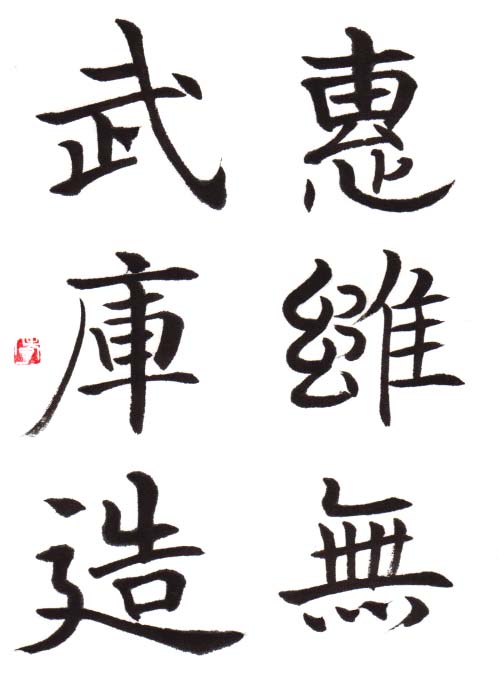 惠維無
武庫造